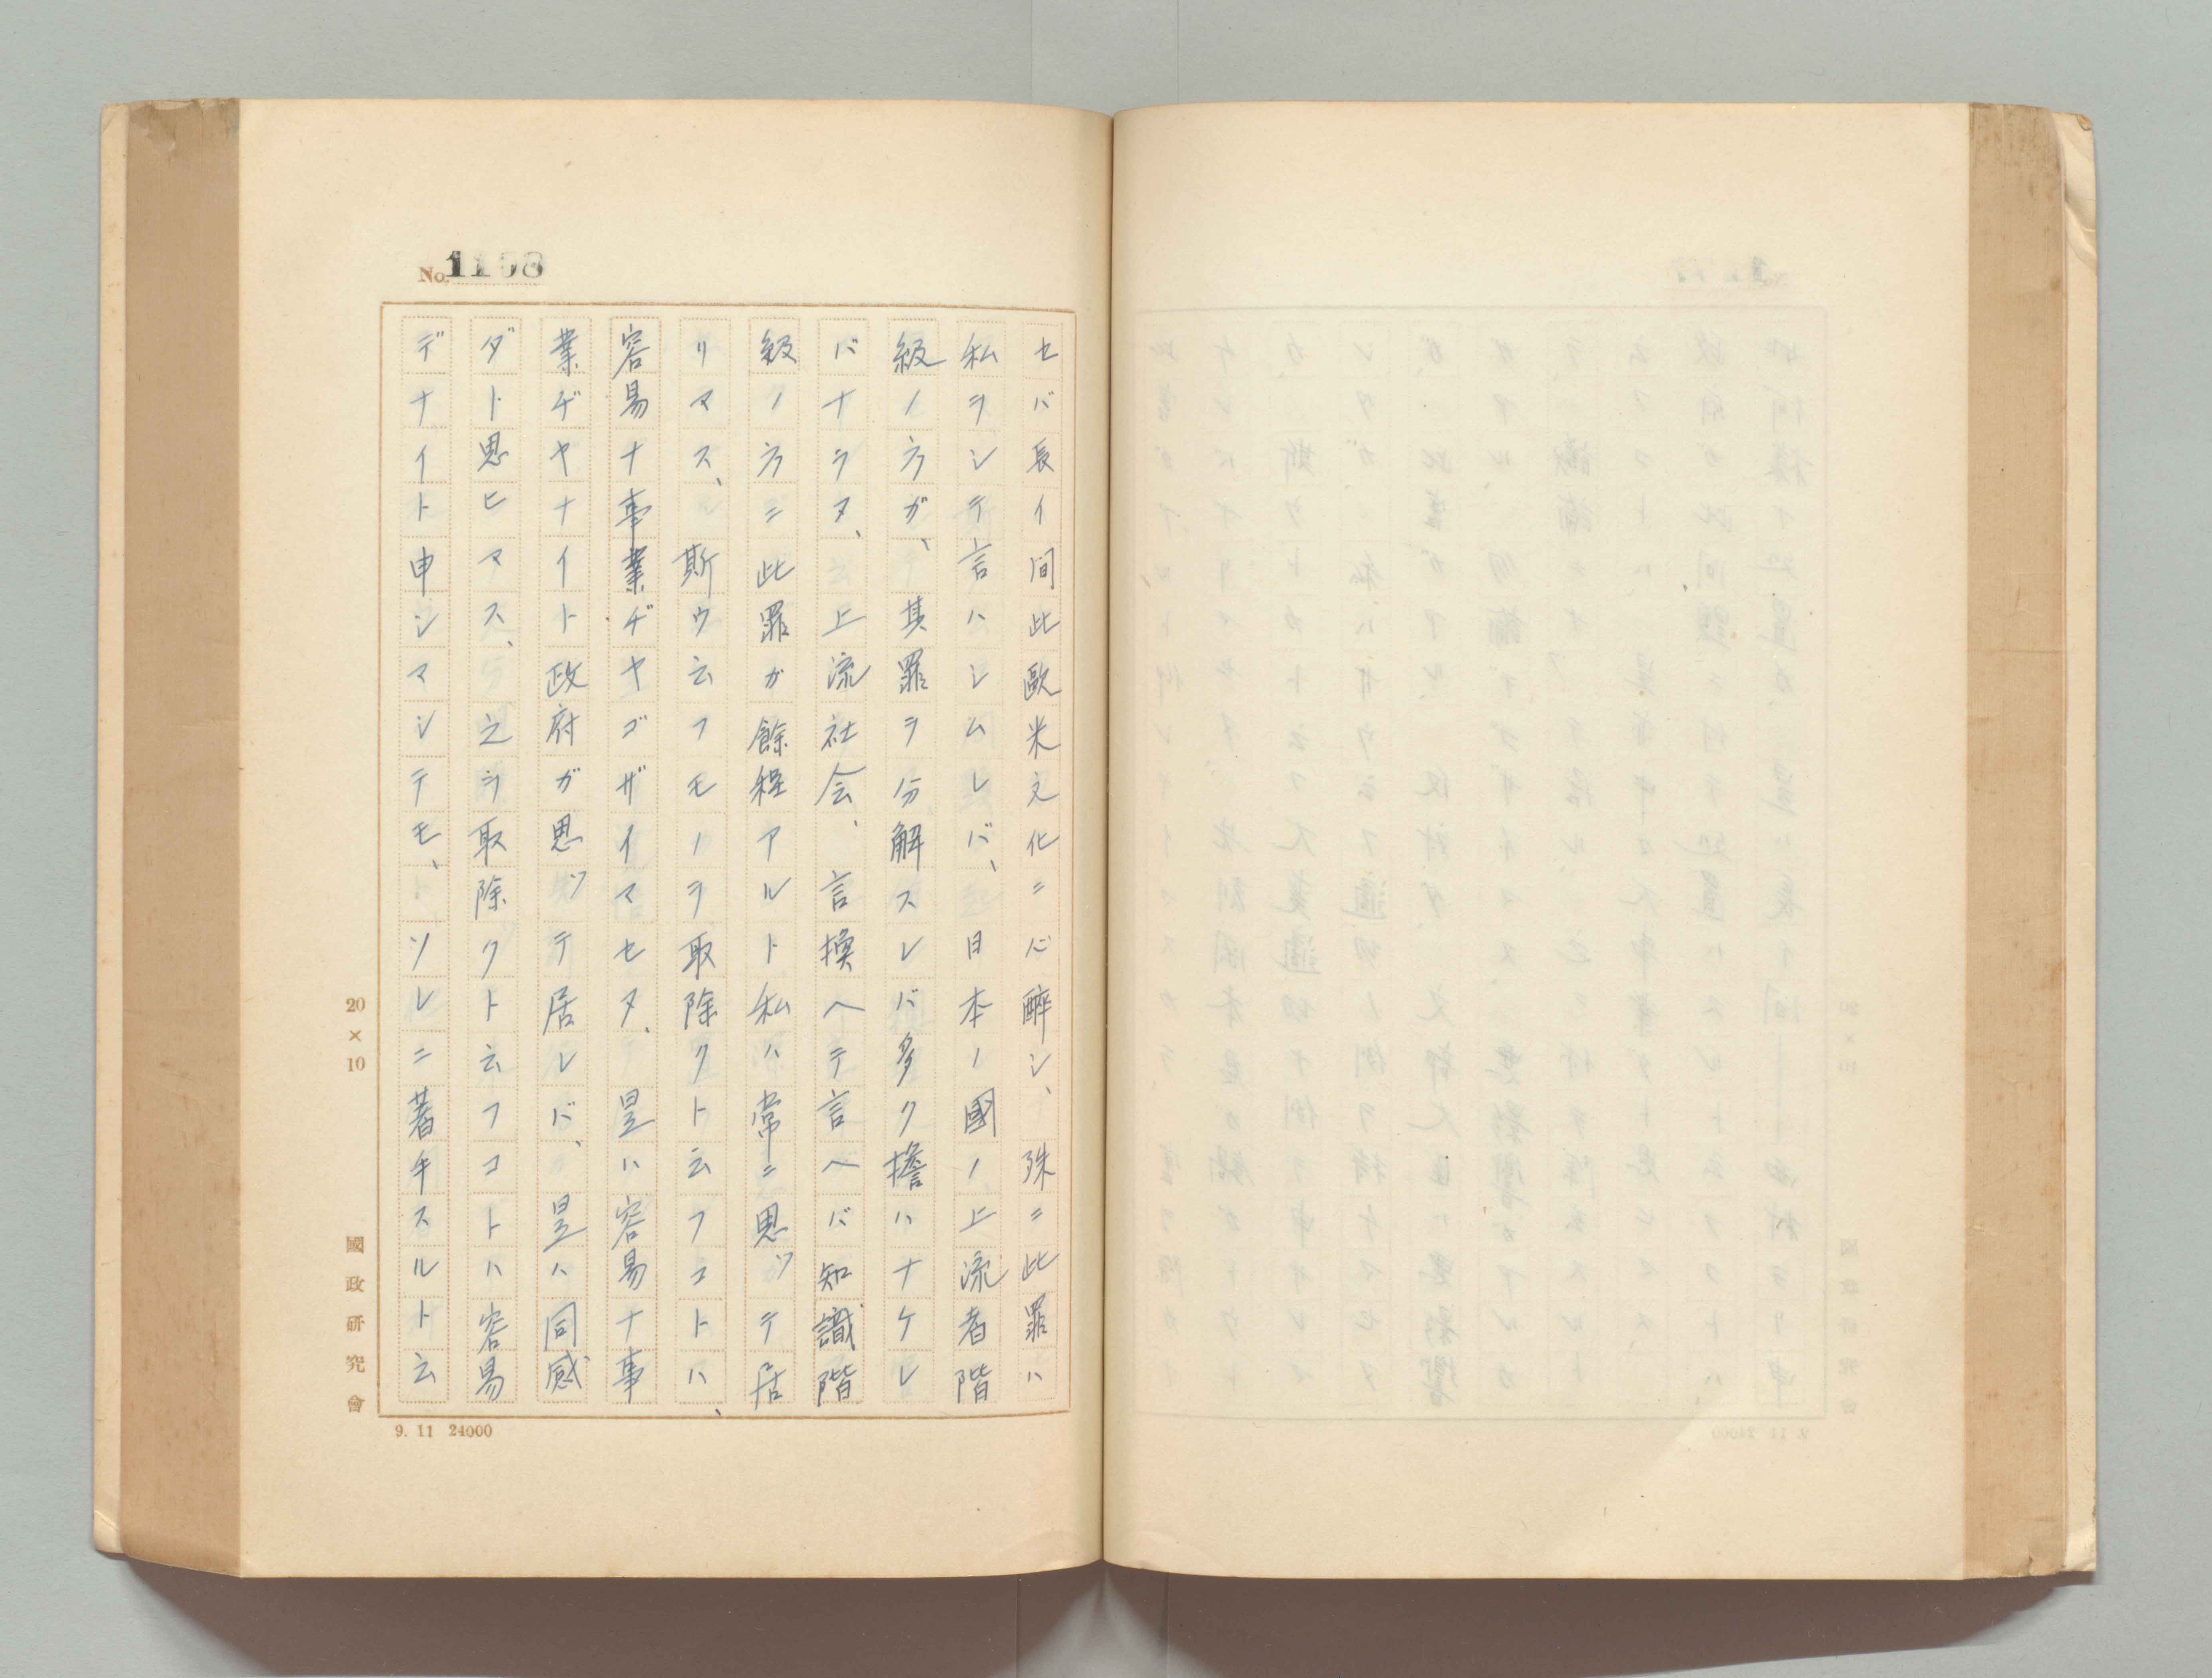 No. 1198
セバ長イ間此歐米文化ニ心醉シ、殊ニ此罪ハ
私ヲシテ言ハシムレバ、日本ノ國ノ上流者階
級ノ方ガ、其罪ヲ分解スレバ多ク擔ハナケレ
バナラヌ、上流社会、言換ヘテ言ヘバ知識階
級ノ方ニ此罪ガ餘程アルト私ハ常ニ思ッテ居
リマス、斯ウ云フモノヲ取除クト云フコトハ、
容易ナ事業ヂヤゴザイマセヌ、是ハ容易ナ事
業ヂヤナイト政府ガ思ッテ居レバ、是ハ同感
ダト思ヒマス、之ヲ取除クト云フコトハ容易
デナイト申シマシテモ、ソレニ著手スルト云
20×10
國政研究會
9. 11 24000